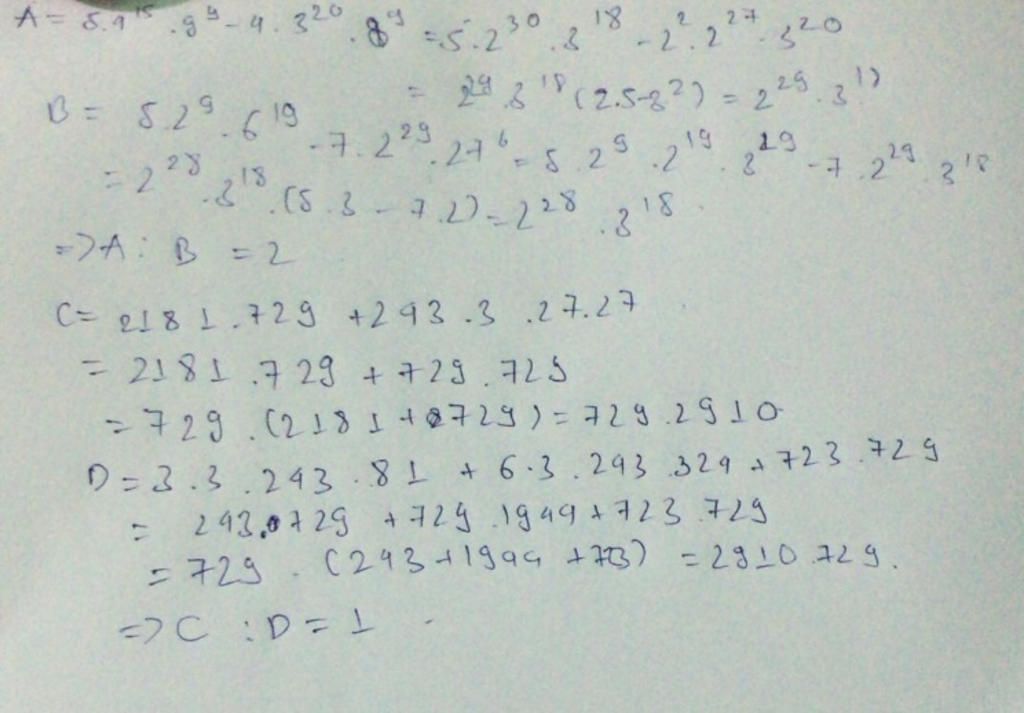 A = 5.4^15 . 9^9 - 4 . 3^20 . 8^9 = 5.2^30 . 3^18 - 2^2 . 2^27 . 3^20
= 2^29 . 3^18 (2.5-3^2) = 2^29 . 3^18
B = 5.2^9 . 6^19 - 7 . 2^29 . 27^6 = 5 . 2^9 . 2^19 . 3^19 - 7 . 2^29 . 3^18
= 2^28 . 3^18 . (5 . 3 - 7.2) = 2^28 . 3^18 .
=> A : B = 2
C = 2181 . 729 + 243 . 3 . 27.27
= 2181 . 729 + 729 . 729
= 729 . (2181 + 729) = 729 . 2910
D = 3 . 3 . 243 . 81 + 6.3 . 243 . 324 + 723 . 729
= 243 . 729 + 729 . 1944 + 723 . 729
= 729 . (243 + 1944 + 723) = 2910 . 729 .
=> C : D = 1 .